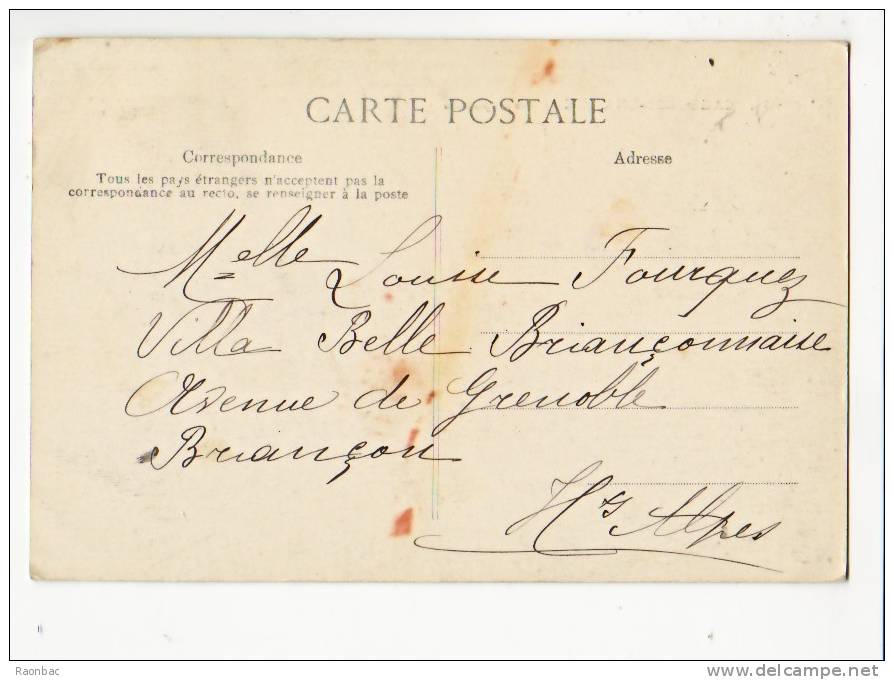 CARTE POSTALE
Correspondance
Adresse
Tous les pays étrangers n'acceptent pas la
correspondance au recto, se renseigner à la poste
Melle Louise Fourquez
Villa Belle Briançonnaise
Avenue de Grenoble
Briançon
Htes Alpes
Raonbac
www.delcampe.net